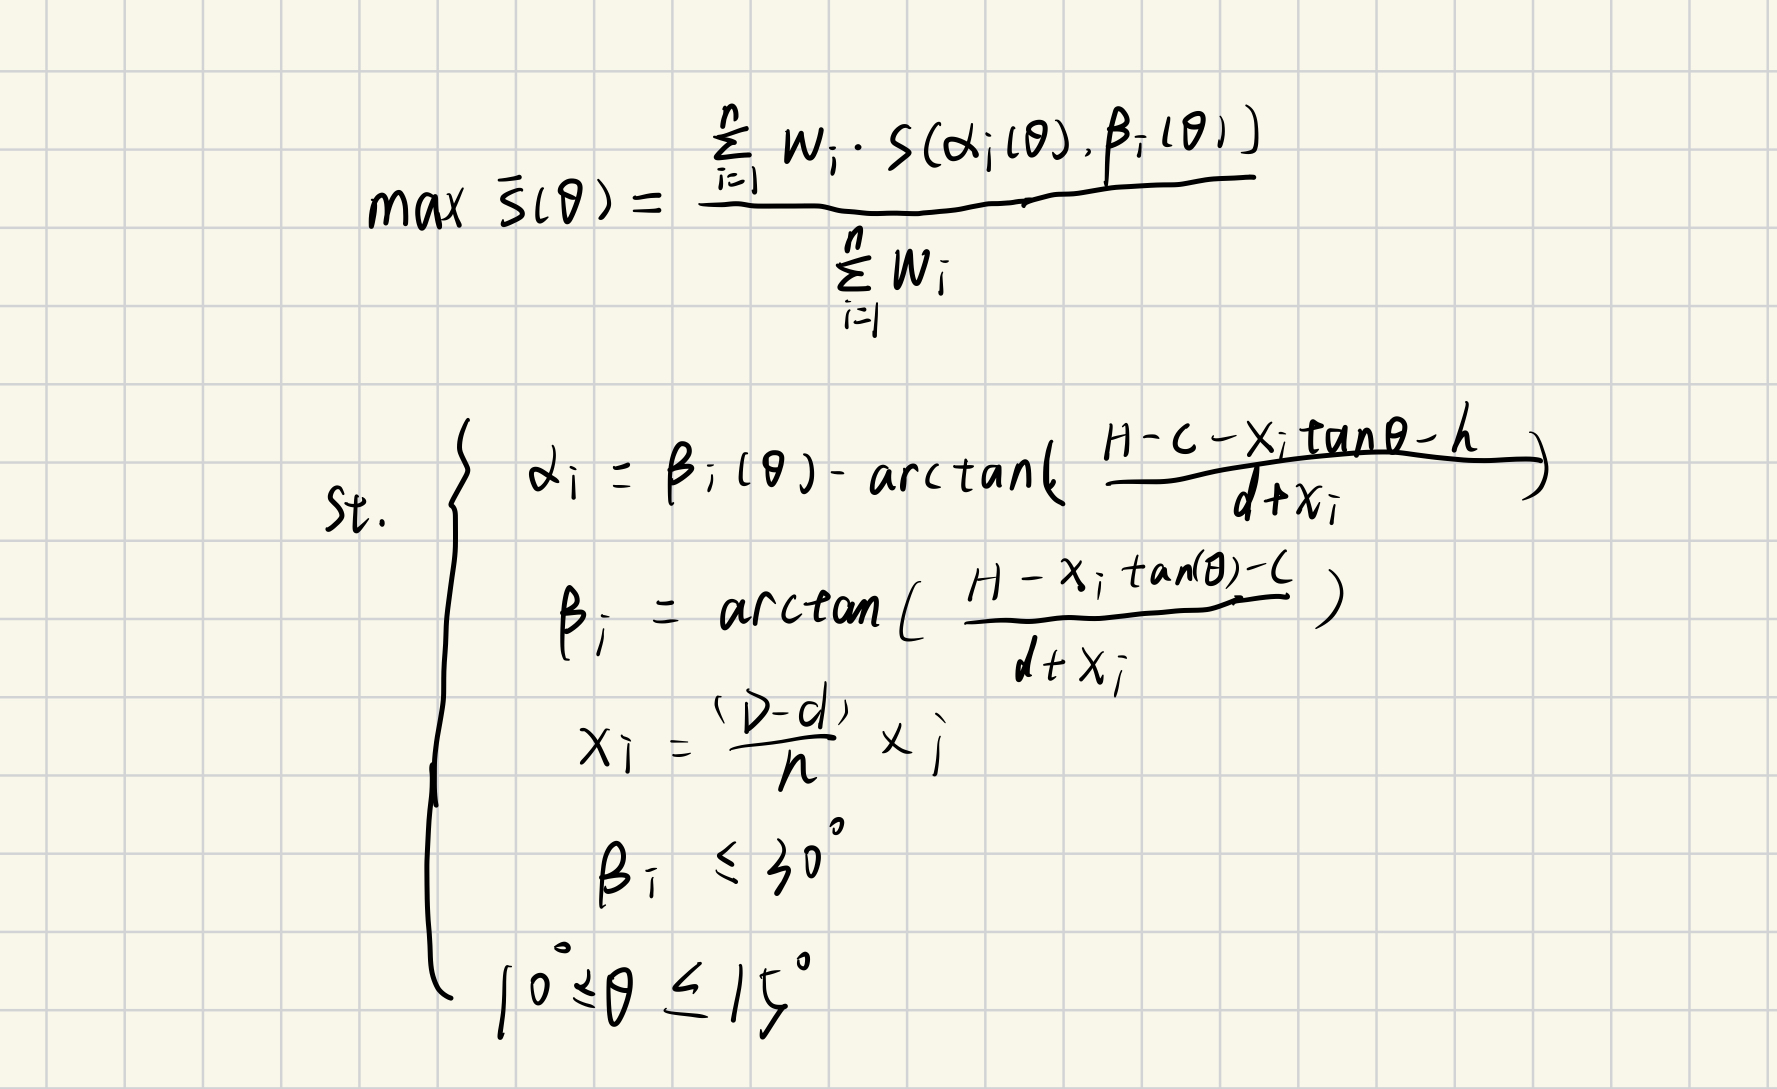 max s̄(θ) = \frac{\sum_{i=1}^{n} W_i · S(α_i(θ), β_i(θ))}{\sum_{i=1}^{n} W_i}
St. { α_i = β_i(θ) - arctan( \frac{H - C - X_i tanθ - h}{d + X_i} )
β_i = arctan( \frac{H - X_i tan(θ) - C}{d + X_i} )
X_i = \frac{(D-d)}{n} × i
β_i ≤ 30°
10° ≤ θ ≤ 15°